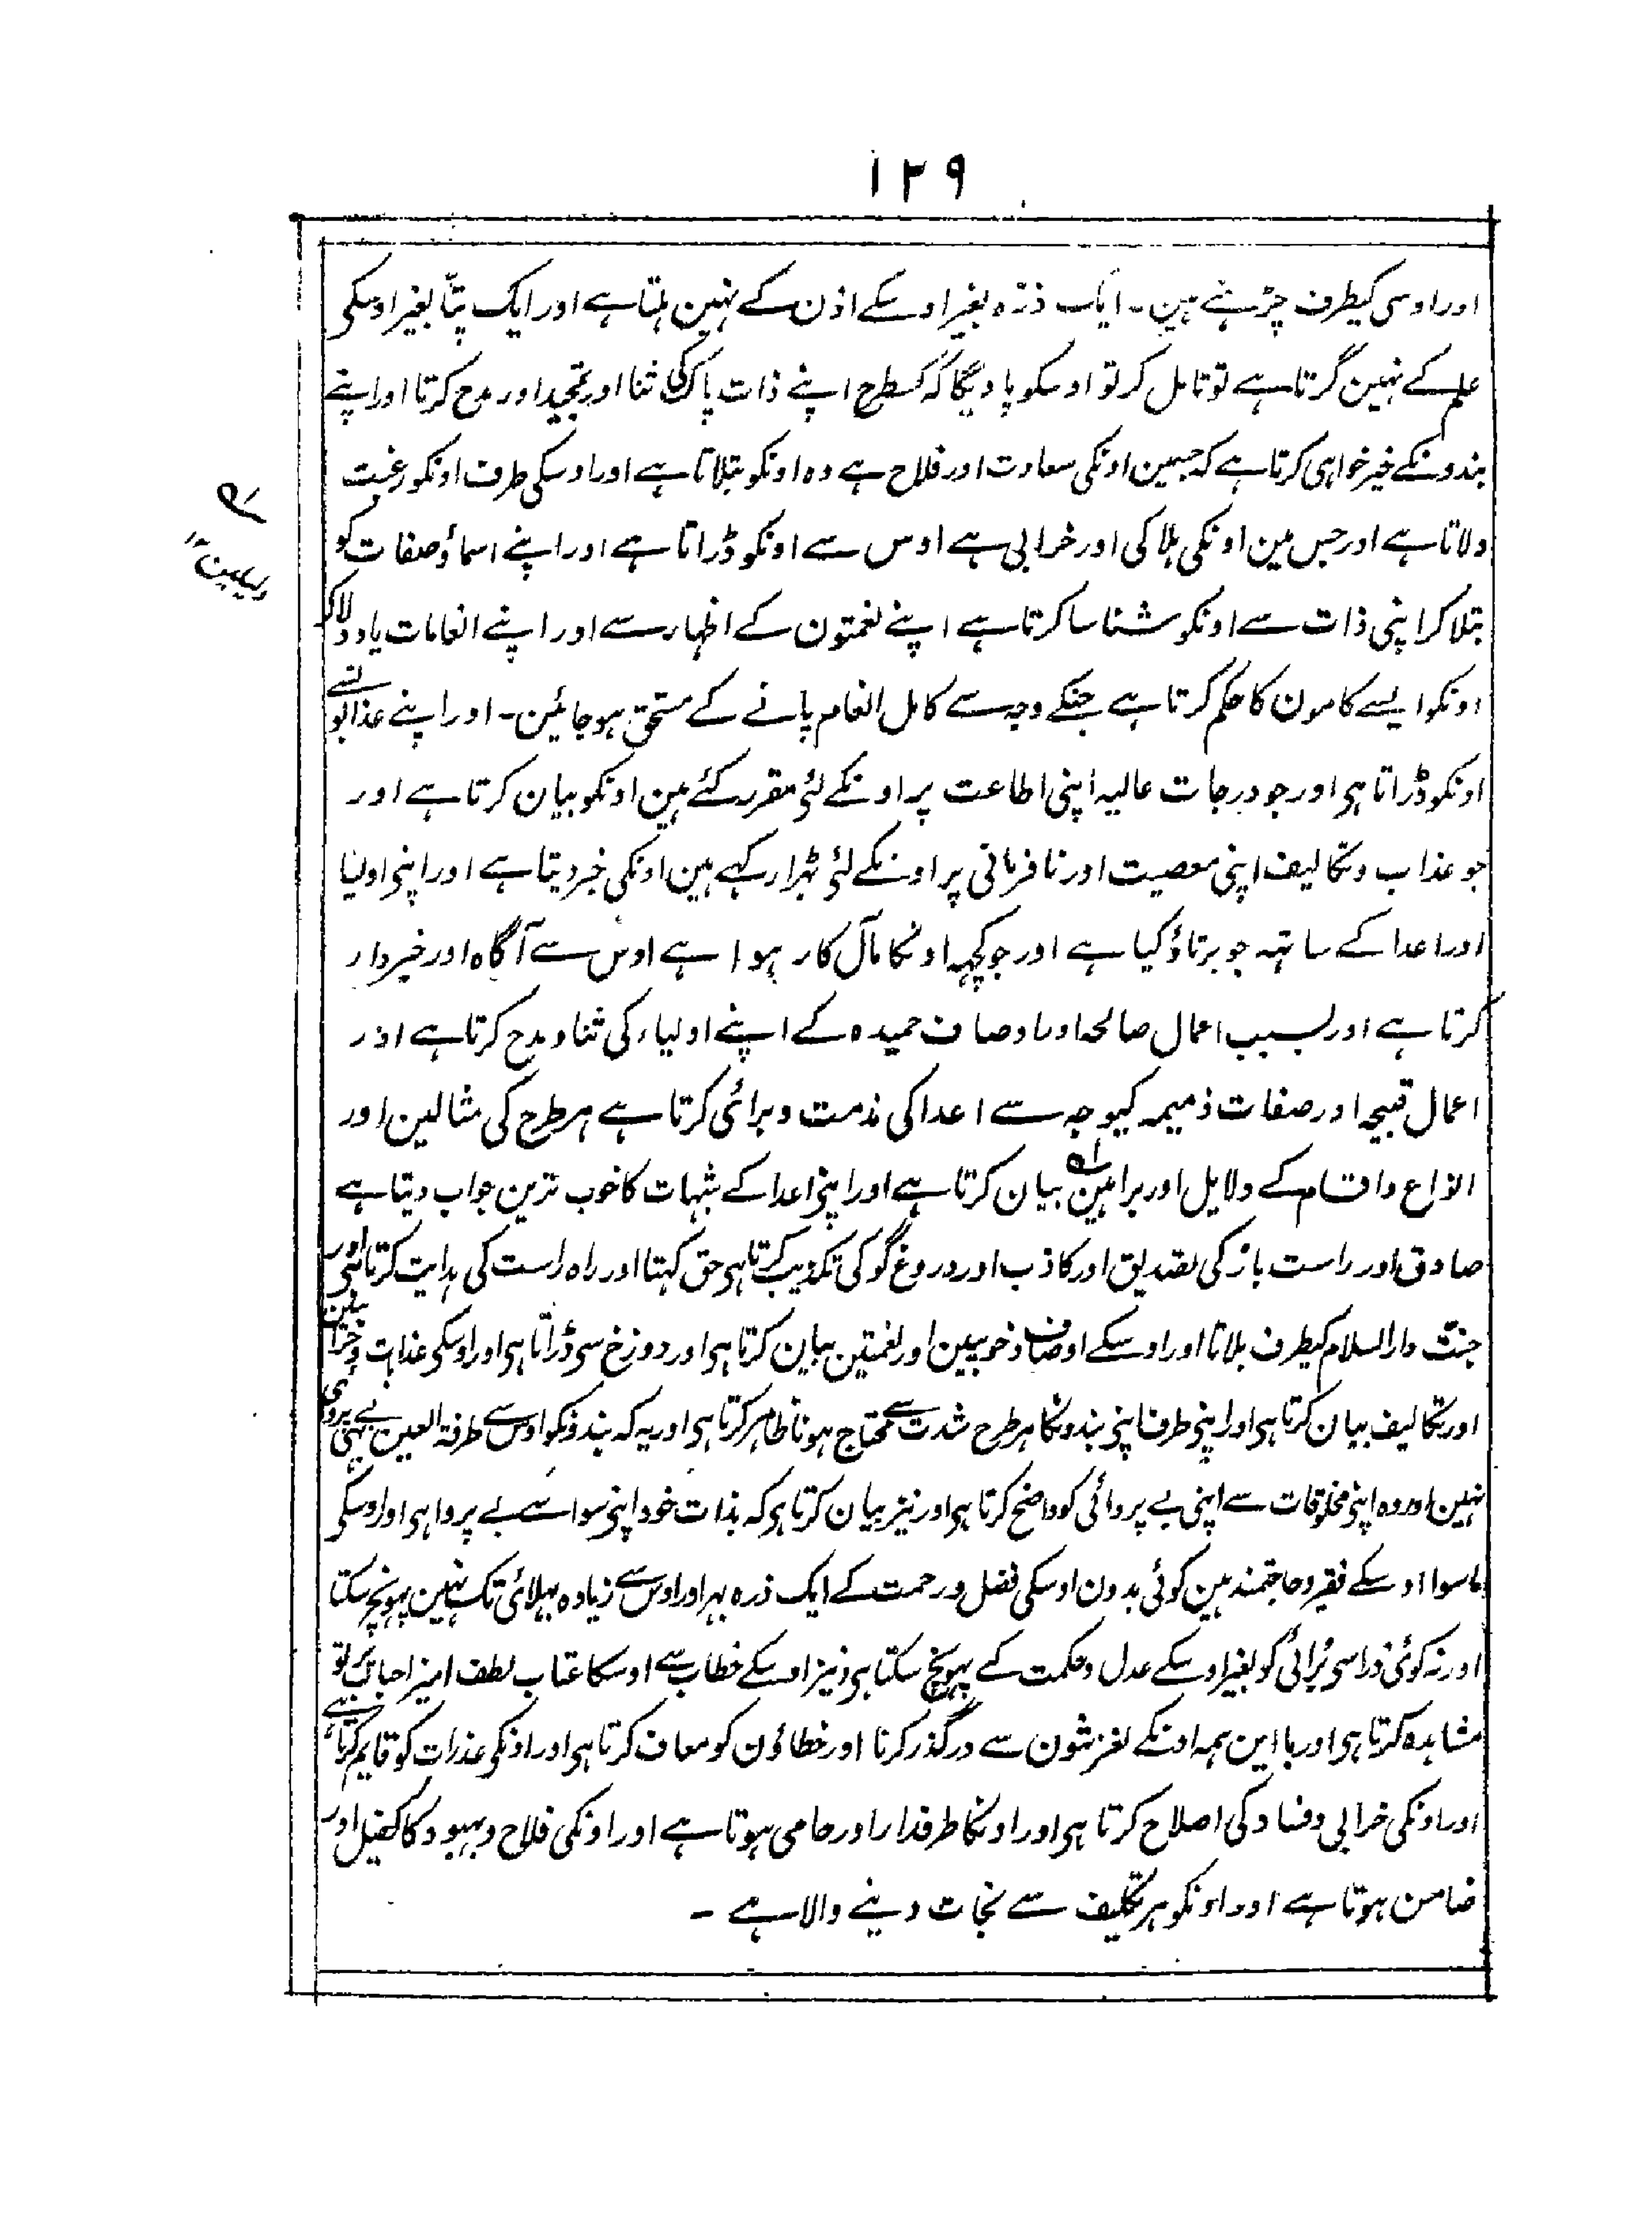 ۱۲۹
اور اوسی کیطرف چڑہنے ہین۔ ایک ذرّہ بغیر اوسکے اذن کے نہین ہلتا ہے اور ایک پتّا بغیر اوسکی
علم کے نہین گرتا ہے تو تامل کر تو اوسکو پاویگا کہ کسطرح اپنے ذات پاک کی ثنا اور تمجید اور مدح کرتا اور اپنے
بندونکے خیر خواہی کرتا ہے کہ جسمین اونکی سعادت اور فلاح ہے وہ اونکو بتلاتا ہے اور اوسکی طرف اونکو رغبت
دلاتا ہے اور جس مین اونکی ہلاکی اور خرابی ہے اوس سے اونکو ڈراتا ہے اور اپنے اسماؤ صفات کو
بتلا کر اپنی ذات سے اونکو شناسا کرتا ہے اپنے نعمتون کے اظہار سے اور اپنے انعامات یاد دلا کر
اونکو ایسے کامون کا حکم کرتا ہے جنکے وجہ سے کامل انعام پانے کے مستحق ہو جائین۔ اور اپنے عذابونسے
اونکو ڈراتا ہی اور جو درجات عالیہ اپنی اطاعت پر اونکے لئی مقرر کئے ہین اونکو بیان کرتا ہے اور
جو عذاب و تکالیف اپنی معصیت اور نافرمانی پر اونکے لئی ٹہرا رکہے ہین اونکی خبر دیتا ہے اور اپنی اولیا
اور اعدا کے ساتہہ جو برتاؤ کیا ہے اور جو کچہہ اونکا مآل کار ہوا ہے اوس سے آگاہ اور خبردار
کرتا ہے اور بسبب اعمال صالحہ اور اوصاف حمیدہ کے اپنے اولیاء کی ثنا و مدح کرتا ہے اور
اعمال قبیحہ اور صفات ذمیمہ کیوجہ سے اعدا کی مذمت و برائی کرتا ہے ہر طرح کی مثالین اور
انواع واقسام کے دلایل اور براہین بیان کرتا ہے اور اپنی اعدا کے شبہات کا خوب ترین جواب دیتا ہے
صادق اور راست باز کی تصدیق اور کاذب اور دروغ گو کی تکذیب کرتا ہی حق کہتا اور راہ راست کی ہدایت کرتا ہی اور
جنّت دار السلام کیطرف بلاتا اور اوسکے اوصاف و خوبیین اور نعمتین بیان کرتا ہی اور دوزخ سی ڈراتا ہی اور اوسکی عذاب
اور تکالیف بیان کرتا ہی اور اپنی طرف اپنی بندونکا ہر طرح شدت سے محتاج ہونا ظاہر کرتا ہی اور یہ کہ بندونکو اوس سے طرفۃ العین بہی بے پروائی
نہین اور وہ اپنی مخلوقات سے اپنی بے پروائی کو واضح کرتا ہی اور نیز بیان کرتا ہی کہ بذات خود اپنی سوا سے بے پروا ہی اور اوسکی
ماسوا اوسکے فقیر و حاجتمند ہین کوئی بدون اوسکی فضل و رحمت کے ایک ذرہ بہر اور اوس سے زیادہ بہلائی تک نہین پہونچ سکتا
اور نہ کوئی ذرا سی بُرائی کو بغیر اوسکے عدل و حکمت کے پہونچ سکتا ہی و نیز اوسکے خطاب سے اوسکا عتاب لطف امیز احباب پر تو
مشاہدہ کرتا ہی اور با این ہمہ اونکے لغزشون سے درگذر کرنا اور خطاؤن کو معاف کرتا ہی اور اونکی عذرات کو قایم کرتا ہے
اور اونکی خرابی و فساد کی اصلاح کرتا ہی اور اونکا طرفدار اور حامی ہوتا ہے اور اونکی فلاح و بہبود کا کفیل اور
ضامن ہوتا ہے اور اونکو ہر تکلیف سے نجات دینے والا ہے ۔
دلیلین